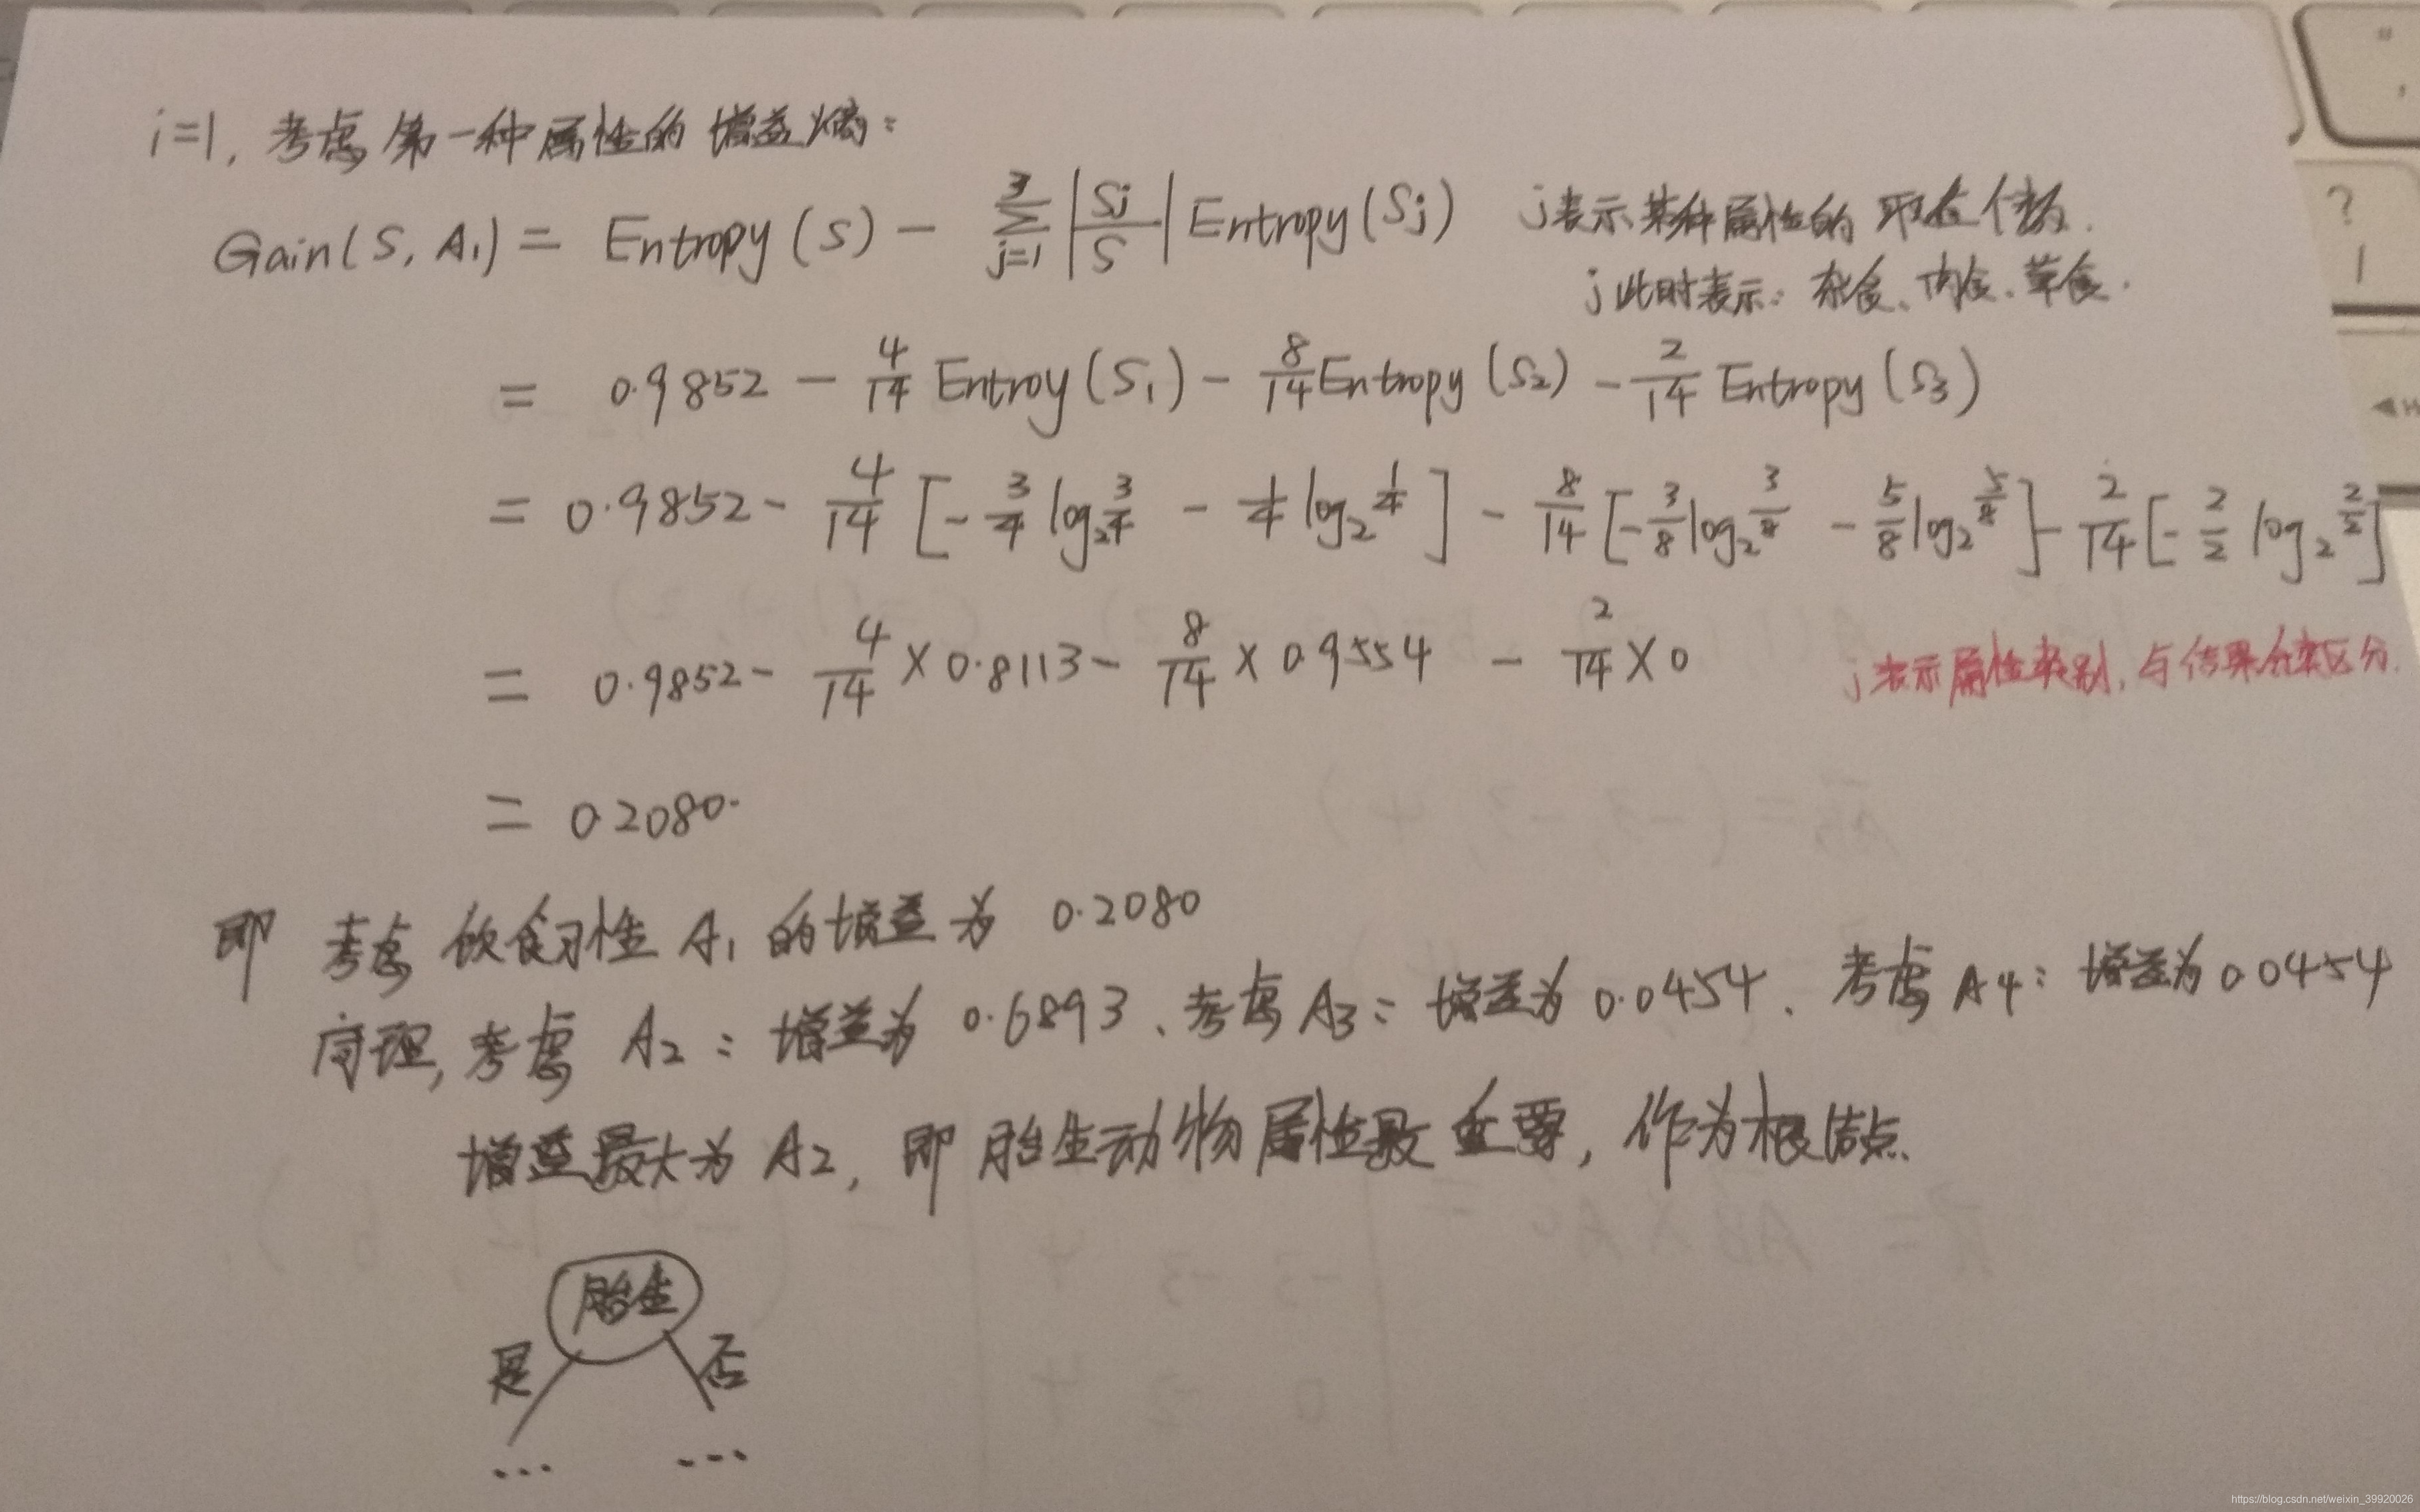 i=1, 考虑第一种属性的增益熵:
Gain(S, A₁) = Entropy(S) - ∑_{j=1}^{3} |Sj/S| Entropy(Sj) j表示某种属性的取值个数.
j此时表示: 杂食、肉食、草食.
= 0.9852 - 4/14 Entroy(S₁) - 8/14 Entropy(S₂) - 2/14 Entropy(S₃)
= 0.9852 - 4/14 [-3/4 log₂ 3/4 - 1/4 log₂ 1/4] - 8/14 [-3/8 log₂ 3/8 - 5/8 log₂ 5/8] - 2/14 [-2/2 log₂ 2/2]
= 0.9852 - 4/14 × 0.8113 - 8/14 × 0.9554 - 2/14 × 0
j表示属性类别, 与结果分类区分.
= 0.2080.
即 考虑饮食习性 A₁ 的增益为 0.2080
同理, 考虑 A₂: 增益为 0.6893、考虑 A₃: 增益为 0.0454、考虑 A₄: 增益为 0.0454
增益最大为 A₂, 即 胎生动物属性最重要, 作为根结点.
胎生
是 否
... ...
?
/
https://blog.csdn.net/weixin_39920026